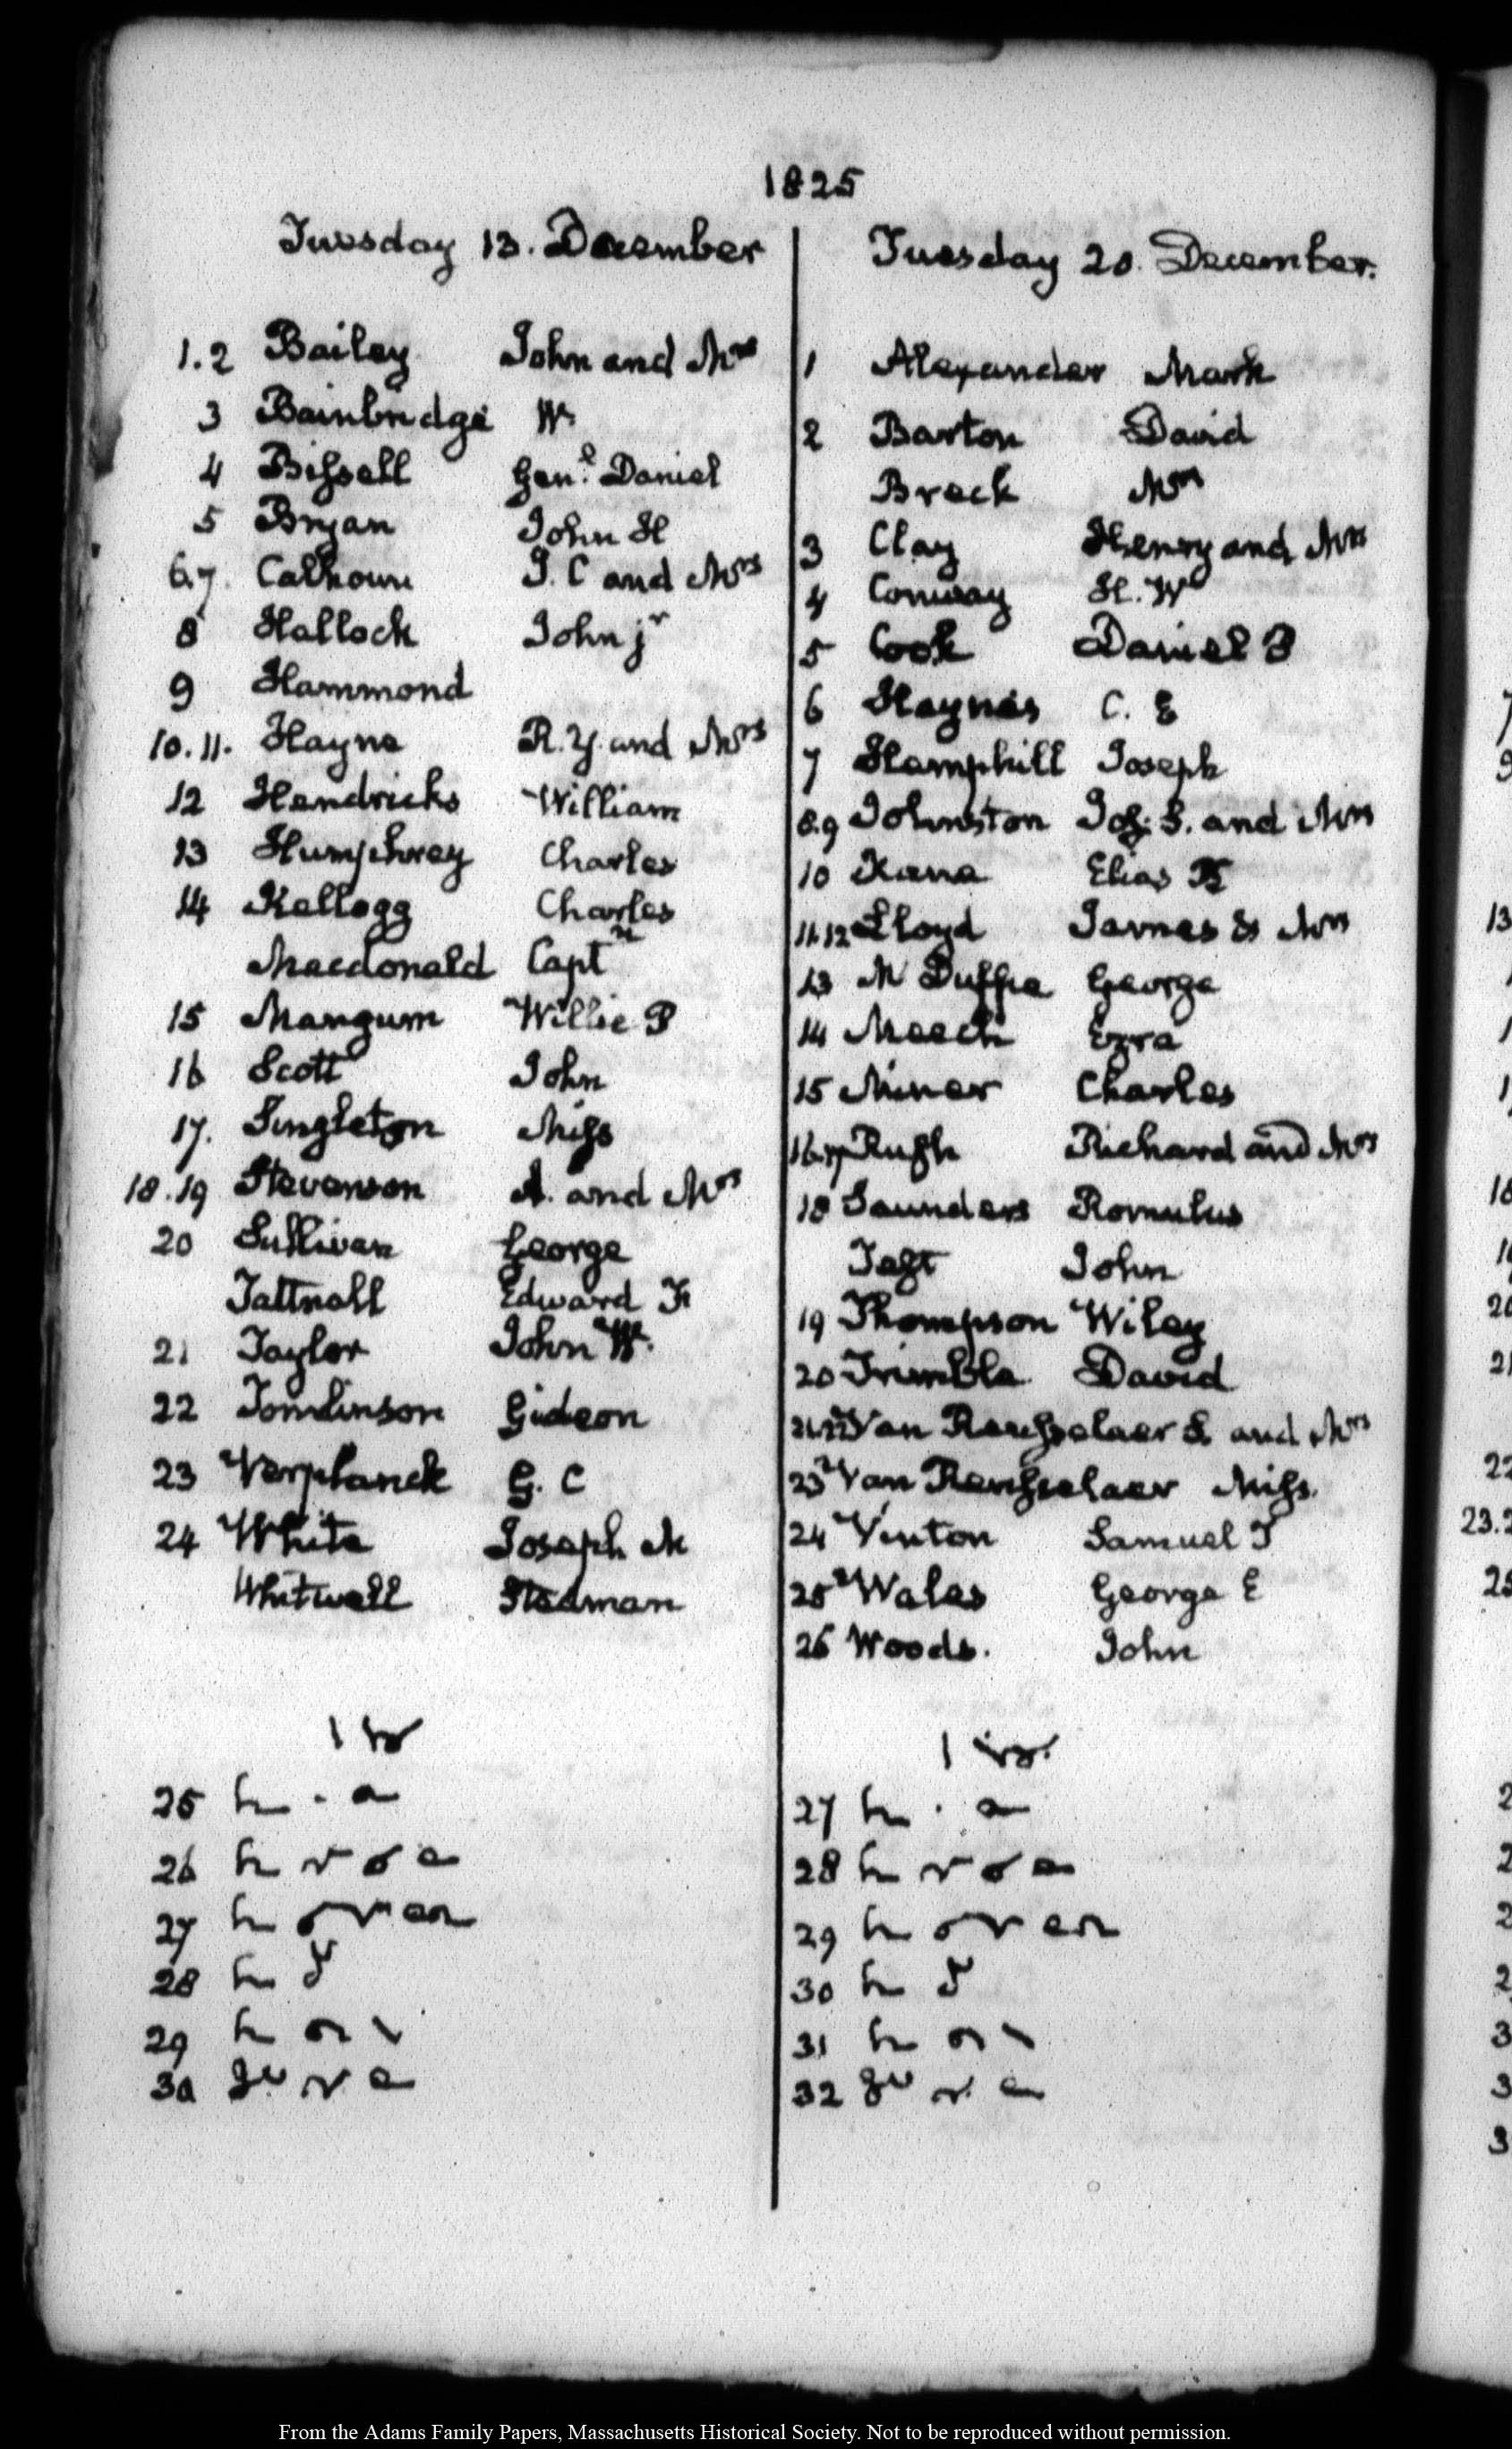 1825
Tuesday 13. December
1.2 Bailey John and Mrs
3 Bainbridge W.
4 Bissell Genl. Daniel
5 Bryan John H
6.7. Calhoun J. C and Mrs
8 Hallock John jr
9 Hammond
10.11. Hayne R. Y. and Mrs
12 Hendricks William
13 Humphrey Charles
14 Kellogg Charles
Macdonald Captn
15 Mangum Willie P
16 Scott John
17. Singleton Miss
18.19 Stevenson A. and Mrs
20 Sullivan George
Tattnall Edward F.
21 Taylor John W.
22 Tomlinson Gideon
23 Verplanck G. C
24 White Joseph M
Whitwell Stedman
25
26
27
28
29
30
Tuesday 20. December.
1 Alexander Mark
2 Barton David
Breck Mrs
3 Clay Henry and Mrs
4 Conway H. W
5 Cook Daniel P
6 Haynes C. E
7 Hemphill Joseph
8.9 Johnston Jos: S. and Mrs
10 Kane Elias K
11.12 Lloyd James & Mrs
13 McDuffie George
14 Meech Ezra
15 Miner Charles
16.17 Rush Richard and Mrs
18 Saunders Romulus
Taft John
19 Thompson Wiley
20 Trimble David
21.22 Van Rensselaer S. and Mrs
23 Van Rensselaer Miss.
24 Vinton Samuel F
25 Wales George E
26 Woods. John
27
28
29
30
31
32
From the Adams Family Papers, Massachusetts Historical Society. Not to be reproduced without permission.